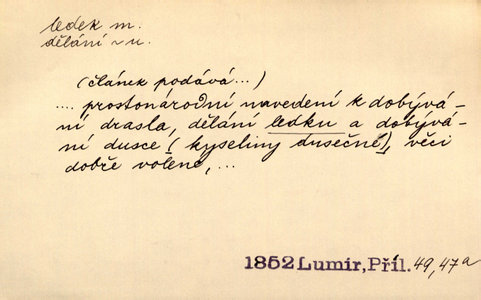 ledek m.
dělání ~ u.
(článek podává...)
.... prostonárodní navedení k dobývá-
ní drasla, dělání ledku a dobývá-
ní dusce (kyseliny dusečné), věci
dobře volené, ...
1852 Lumír, Příl. 49, 47a